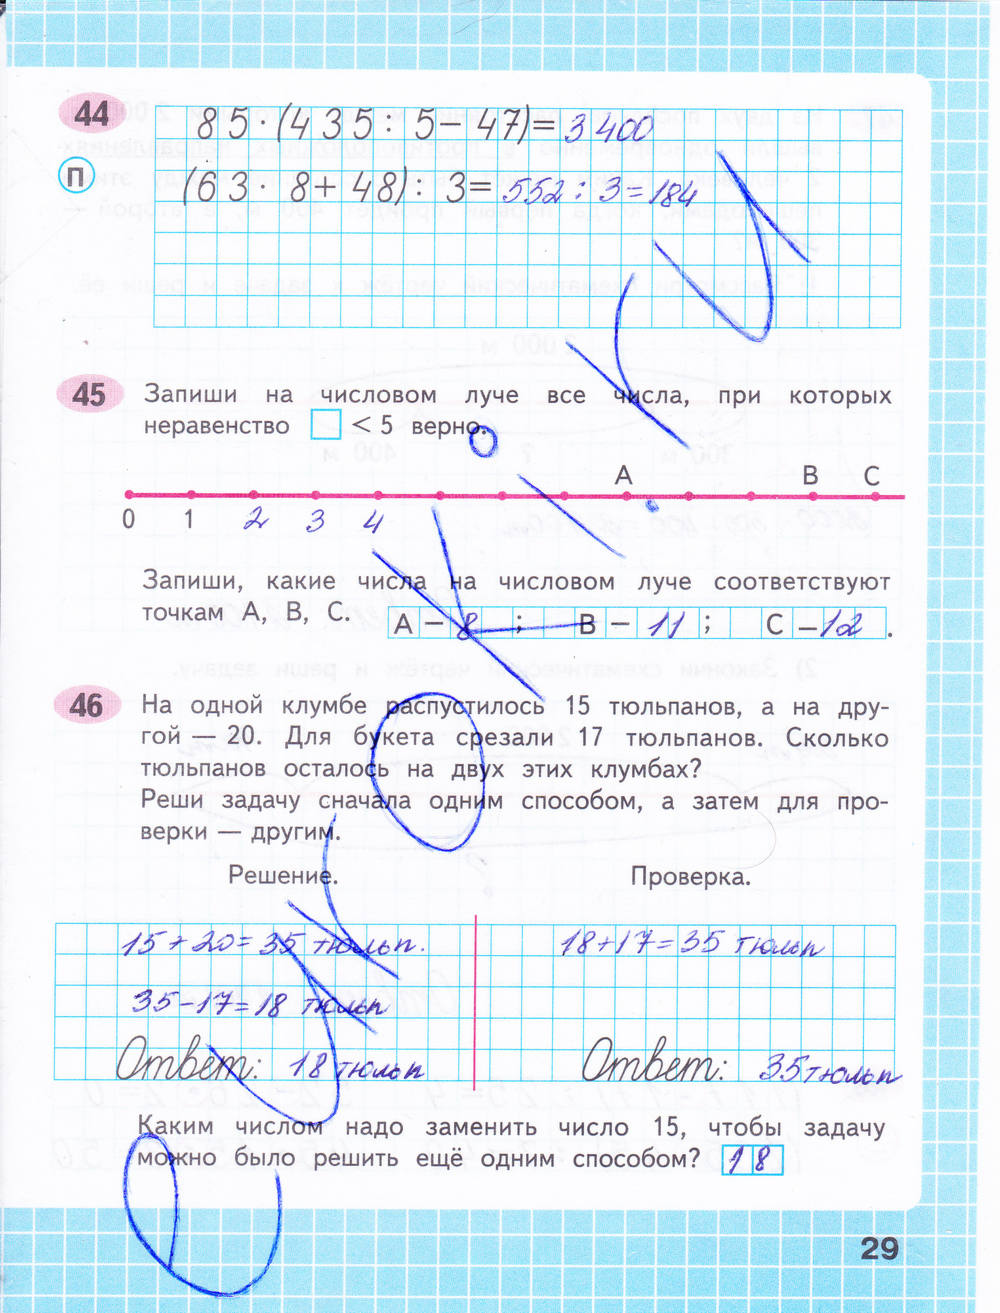 44 85 · (435 : 5 – 47) = 3400
П (63 · 8 + 48) : 3 = 552 : 3 = 184
45 Запиши на числовом луче все числа, при которых
неравенство □ < 5 верно.
A B C
0 1 2 3 4
Запиши, какие числа на числовом луче соответствуют
точкам А, В, С. А – 8 ; В – 11 ; С – 12 .
46 На одной клумбе распустилось 15 тюльпанов, а на дру-
гой — 20. Для букета срезали 17 тюльпанов. Сколько
тюльпанов осталось на двух этих клумбах?
Реши задачу сначала одним способом, а затем для про-
верки — другим.
Решение. Проверка.
15 + 20 = 35 тюльп. 18 + 17 = 35 тюльп
35 – 17 = 18 тюльп
Ответ: 18 тюльп Ответ: 35 тюльп
Каким числом надо заменить число 15, чтобы задачу
можно было решить ещё одним способом? 18
29